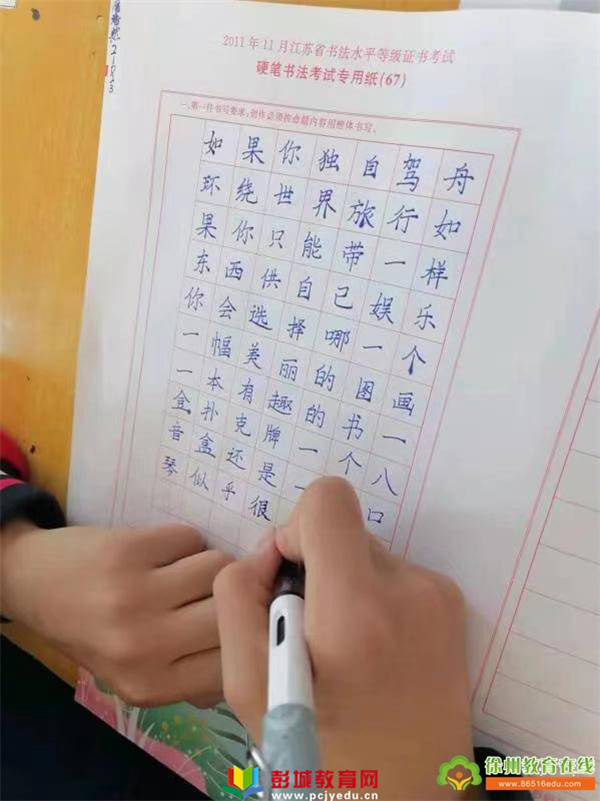 2011年11月江苏省书法水平等级证书考试
硬笔书法考试专用纸(67)
一、第一任书写要求:创作必须按命题内容用楷体书写。
如果你独自驾舟
环绕世界旅行如
果你只能带一样
东西供自己娱乐
你会选择哪一个
一幅美丽的图画
一本有趣的书一
盒扑克牌一个八
音盒还是一口
琴似乎很
彭城教育网
www.pcjyedu.cn
徐州教育在线
www.86516edu.com